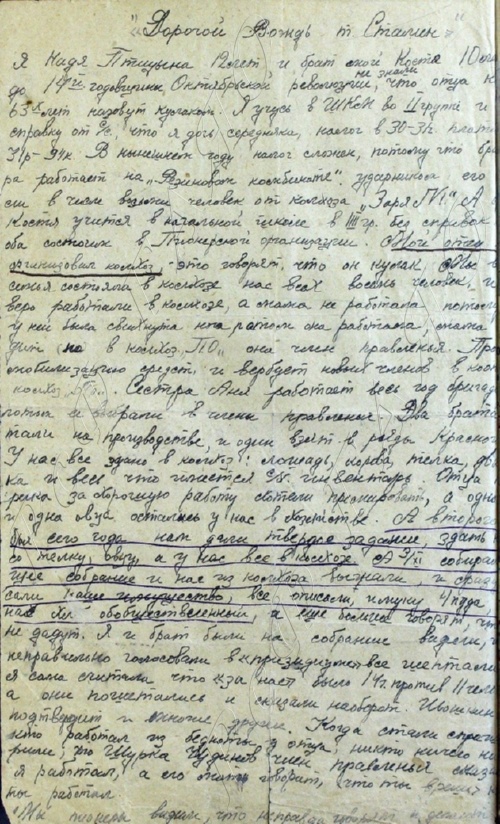 "Дорогой Вождь т. Сталин"
Я Надя Птицына 12 лет и брат мой Костя 10 лет
до 14й годовщины Октябрьской революции не знали, что отца к
63х лет назовут кулаком. Я учусь в ШКМ во II группе и
справку от с/с, что я дочь середняка, налог в 30-31г. плати
31р-94к. В нынешнем году налог сложен, потому что бра
ра работает на "Резиновом комбинате" ударником его
си в числе человек от колхоза "Заря №1". А
Костя учится в начальной школе в III гр. без справок
оба состоим в Пионерской организации. Мой отец
организовал колхоз - это говорят, что он кулак. Мы в
семья состояла в колхозе нас всех восемь человек, и
веро работали в колхозе, а мама не работала потому
у ней была свихнута нога потом она работала, мама
дит в колхоз она член правления. Про
мобилизацию средств и вербует новых членов в
колхоз. Сестра Аня работает весь год бригад
потом и выбрали в члены правления Два брата
тали на производстве, и один взят в ряды Красной
У нас все здано в колхоз: лошадь, корова, телка, дв
ка и весь что имается с/х. инвентарь. Отца
за хорошую работу хотели премировать, а одна
и одна овца остались у нас в хозяйстве. А второго
бря сего года нам дали твердое задание, здать
со телку, овцу, а у нас все в колхозе. А 3/XI собирали
щее собрание и нас из колхоза выгнали и
сали наше имущество, все описали, и муку 4 пуда
нас хлеб обобществленный, а еще больше говорят, что
не дадут. Я и брат были на собрание видели,
неправильно голосовали в президиуме все шептали
я сама считала что за нас было 14ч. против 11 чел
а они пошептались и сказали наоборот.
подтвердит и многие другие. Когда стали спра
кто работал из бедноты у отца, никто ничего не
рили, но Шурка Чудинов член правленья
я работал, а его мать говорит, что ты врешь
ны работал.
Мы пионеры видим, что неправда говорят и делают